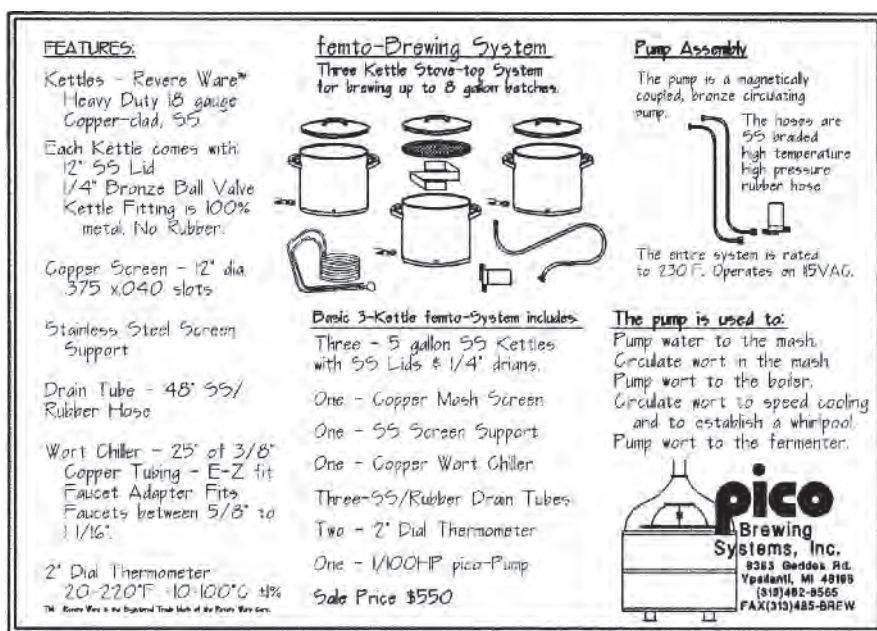 FEATURES:
Kettles - Revere Ware™
Heavy Duty 18 gauge
Copper-clad, SS
Each Kettle comes with:
12" SS Lid
1/4" Bronze Ball Valve
Kettle Fitting is 100%
metal. No Rubber.
Copper Screen - 12" dia
.375 x.040 slots
Stainless Steel Screen
Support
Drain Tube - 48" SS/
Rubber Hose
Wort Chiller - 25' of 3/8"
Copper Tubing - E-Z fit
Faucet Adapter Fits
Faucets between 5/8" to
1 1/16".
2" Dial Thermometer
20-220°F -10-100°C ±1%
TM Revere Ware is the Registered Trade Mark of the Revere Ware Corp.
femto-Brewing System
Three Kettle Stove-top System
for brewing up to 8 gallon batches.
Basic 3-Kettle femto-System includes:
Three - 5 gallon SS Kettles
with SS Lids & 1/4" drians.
One - Copper Mash Screen
One - SS Screen Support
One - Copper Wort Chiller
Three-SS/Rubber Drain Tubes
Two - 2" Dial Thermometer
One - 1/100HP pico-Pump
Sale Price $550
Pump Assembly
The pump is a magnetically
coupled, bronze circulating
pump.
The hoses are
SS braided
high temperature
high pressure
rubber hose
The entire system is rated
to 230F. Operates on 115VAC.
The pump is used to:
Pump water to the mash.
Circulate wort in the mash
Pump wort to the boiler.
Circulate wort to speed cooling
and to establish a whirlpool.
Pump wort to the fermenter.
pico
Brewing
Systems, Inc.
8383 Geddes Rd.
Ypsilanti, MI 48198
(313)482-8565
FAX(313)485-BREW